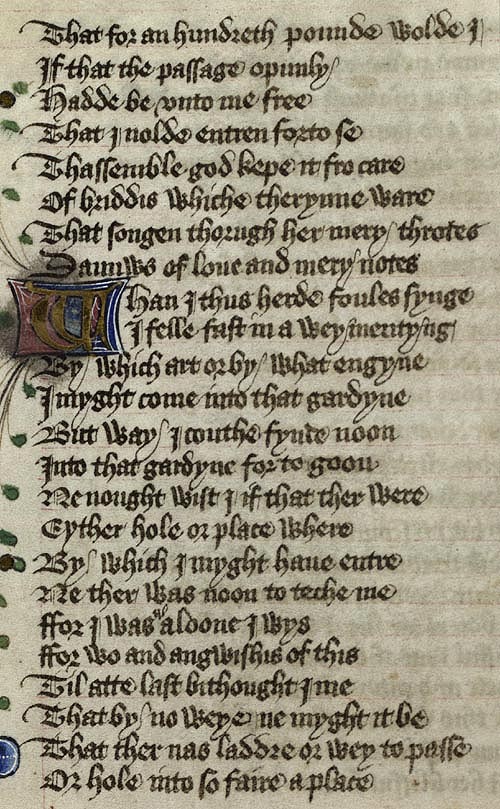 That for an hundreth pounde wolde I
If that the passage opunly
Hadde be vnto me free
That I nolde entren forto se
Thassemble god kepe it fro care
Of briddis whiche therynne ware
That songen thorugh her mery throtes
Daunws of loue and mery notes
Whan I thus herde foules synge
I felle fast in a weymentyng
By which art or by what engyne
I myght come into that gardyne
But way I couthe fynde noon
Into that gardyne for to goon
Ne nought wist I if that ther were
Eyther hole or place where
By which I myght haue entre
Ne ther was noon to teche me
ffor I was al aldone I wys
ffor wo and angwishis of this
Til atte last bithought I me
That by no weye ne myght it be
That ther nas laddre or wey to passe
Or hole into so faire a place